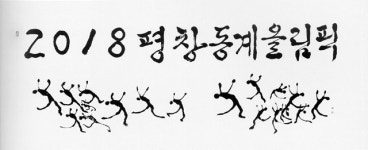 2018평창동계올림픽